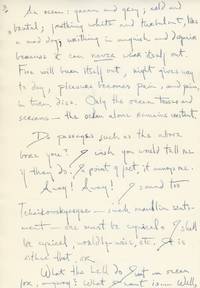 An ocean: green and gray, cold and
brutal; frothing white and turbulent, like
a mad dog, writhing in anguish and despair
because it can never wear itself out.
Fire will burn itself out, night gives way
to day, pleasure becomes pain, and pain,
in turn, dies. Only the ocean tosses and
screams — the ocean alone remains constant.
Do passages such as the above
bore you? I wish you would tell me
if they do. In point of fact, it annoys me.
Away! Away! I sound too
Tchaikovskyesque — such maudlin senti-
ment — one must be cynical. I shall
be cynical, worldly-wise, etc. It is
either that, or
What the hell do I want an ocean
for, anyway? What I want is — Well,